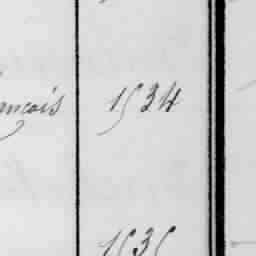 ançois 1534
1535